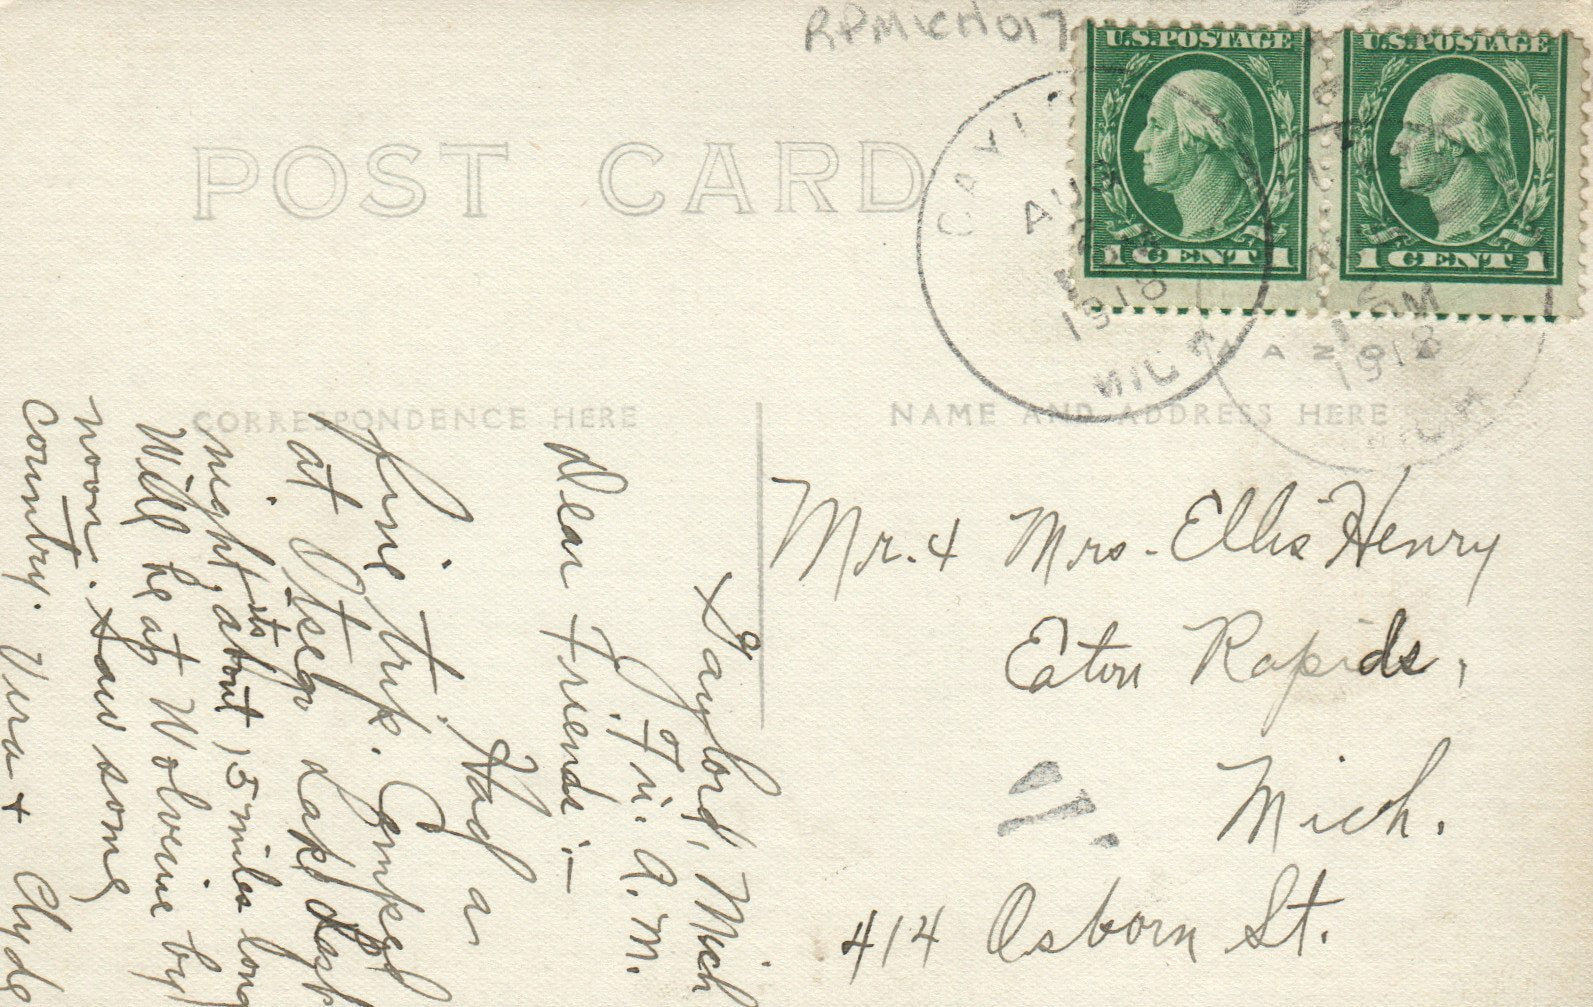 RPMICH017
U.S. POSTAGE
1 CENT 1
U.S. POSTAGE
1 CENT 1
AUG
1918
MICH
1918
POST CARD
CORRESPONDENCE HERE
NAME AND ADDRESS HERE
Gaylord, Mich
Fri. A.M.
Dear Friends:-
Had a
fine trip. Camped
at Otsego Lake last
night, its about 5 miles long
Will be at Wolverine by
noon. Saw some
country. Vera + Clyde
Mr. + Mrs. Ellis Henry
Eaton Rapids,
Mich.
414 Osborn St.